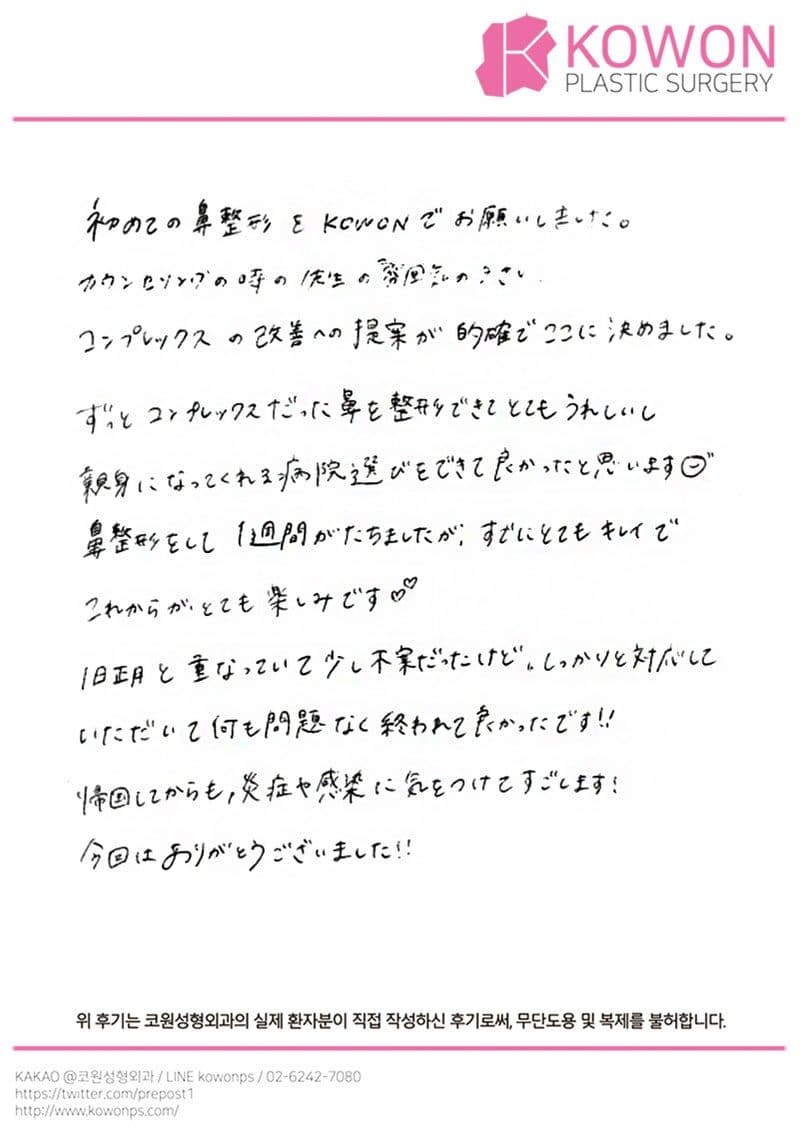 KOWON
PLASTIC SURGERY
初めての鼻整形をKOWONでお願いしました。
カウンセリングの時の先生の雰囲気のよさと
コンプレックスの改善への提案が的確でここに決めました。
ずっとコンプレックスだった鼻を整形できてとてもうれしいし
親身になってくれる病院選びをできて良かったと思います
鼻整形をして1週間がたちましたが、すでにとてもキレイで
これからがとても楽しみです♡♡
旧正月と重なっていて少し不安だったけど、しっかりと対応して
いただいて何も問題なく終われて良かったです!!
帰国してからも、炎症や感染に気をつけてすごします!
今回はありがとうございました!!
위 후기는 코원성형외과의 실제 환자분이 직접 작성하신 후기로써, 무단도용 및 복제를 불허합니다.
KAKAO @코원성형외과 / LINE kowonps / 02-6242-7080
https://twitter.com/prepost1
http://www.kowonps.com/